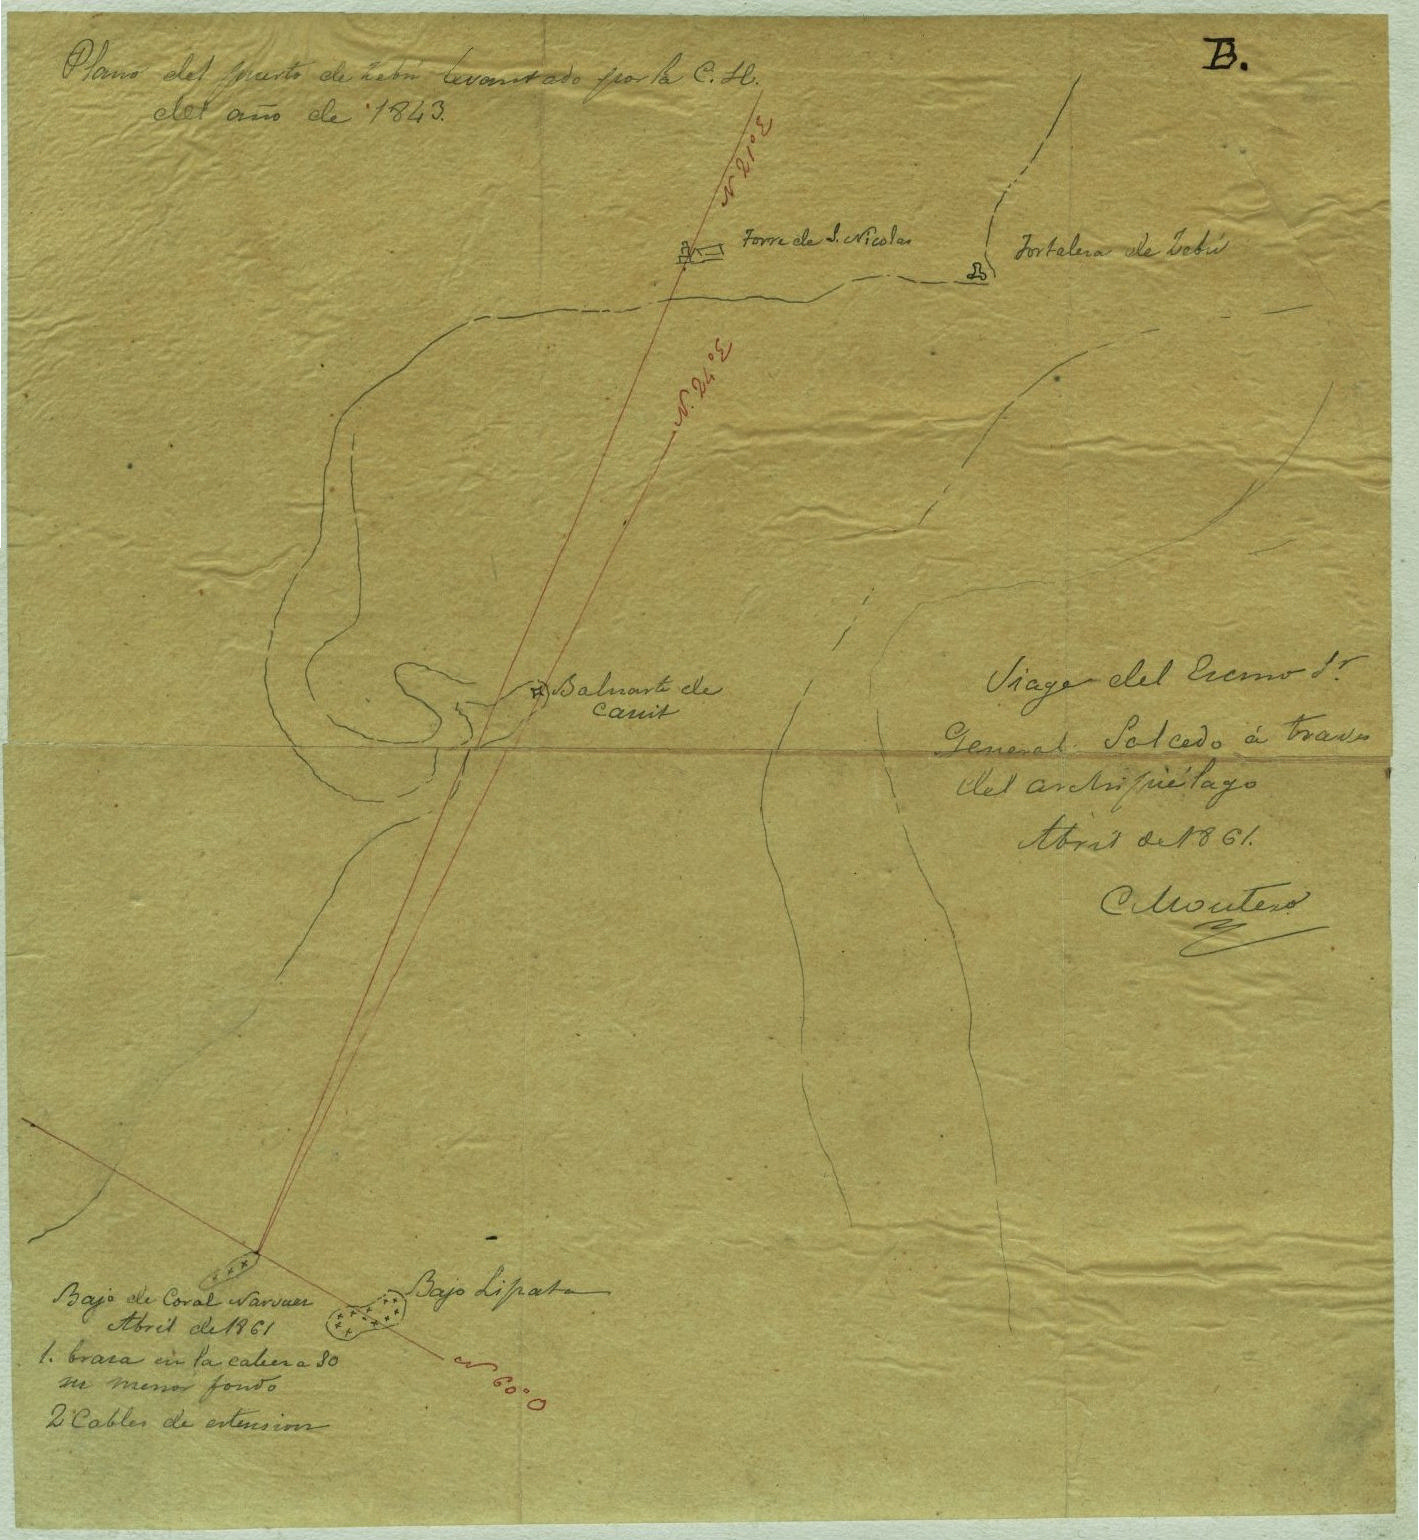 Plano del puerto de Zebú levantado por la C. H.
del año de 1843.
B.
N 21° E
Torre de S. Nicolas
Fortaleza de Zebú
N. 24° E
Baluarte de
Cauit
Viage del Excmo Sr
General Salcedo á traves
del archipiélago
Abril de 1861.
CMontero
Bajo de Coral Narvaez
Abril de 1861
1. braza en la cabeza SO
su menor fondo
2 Cables de extension
Bajo Lipata
N 60° O